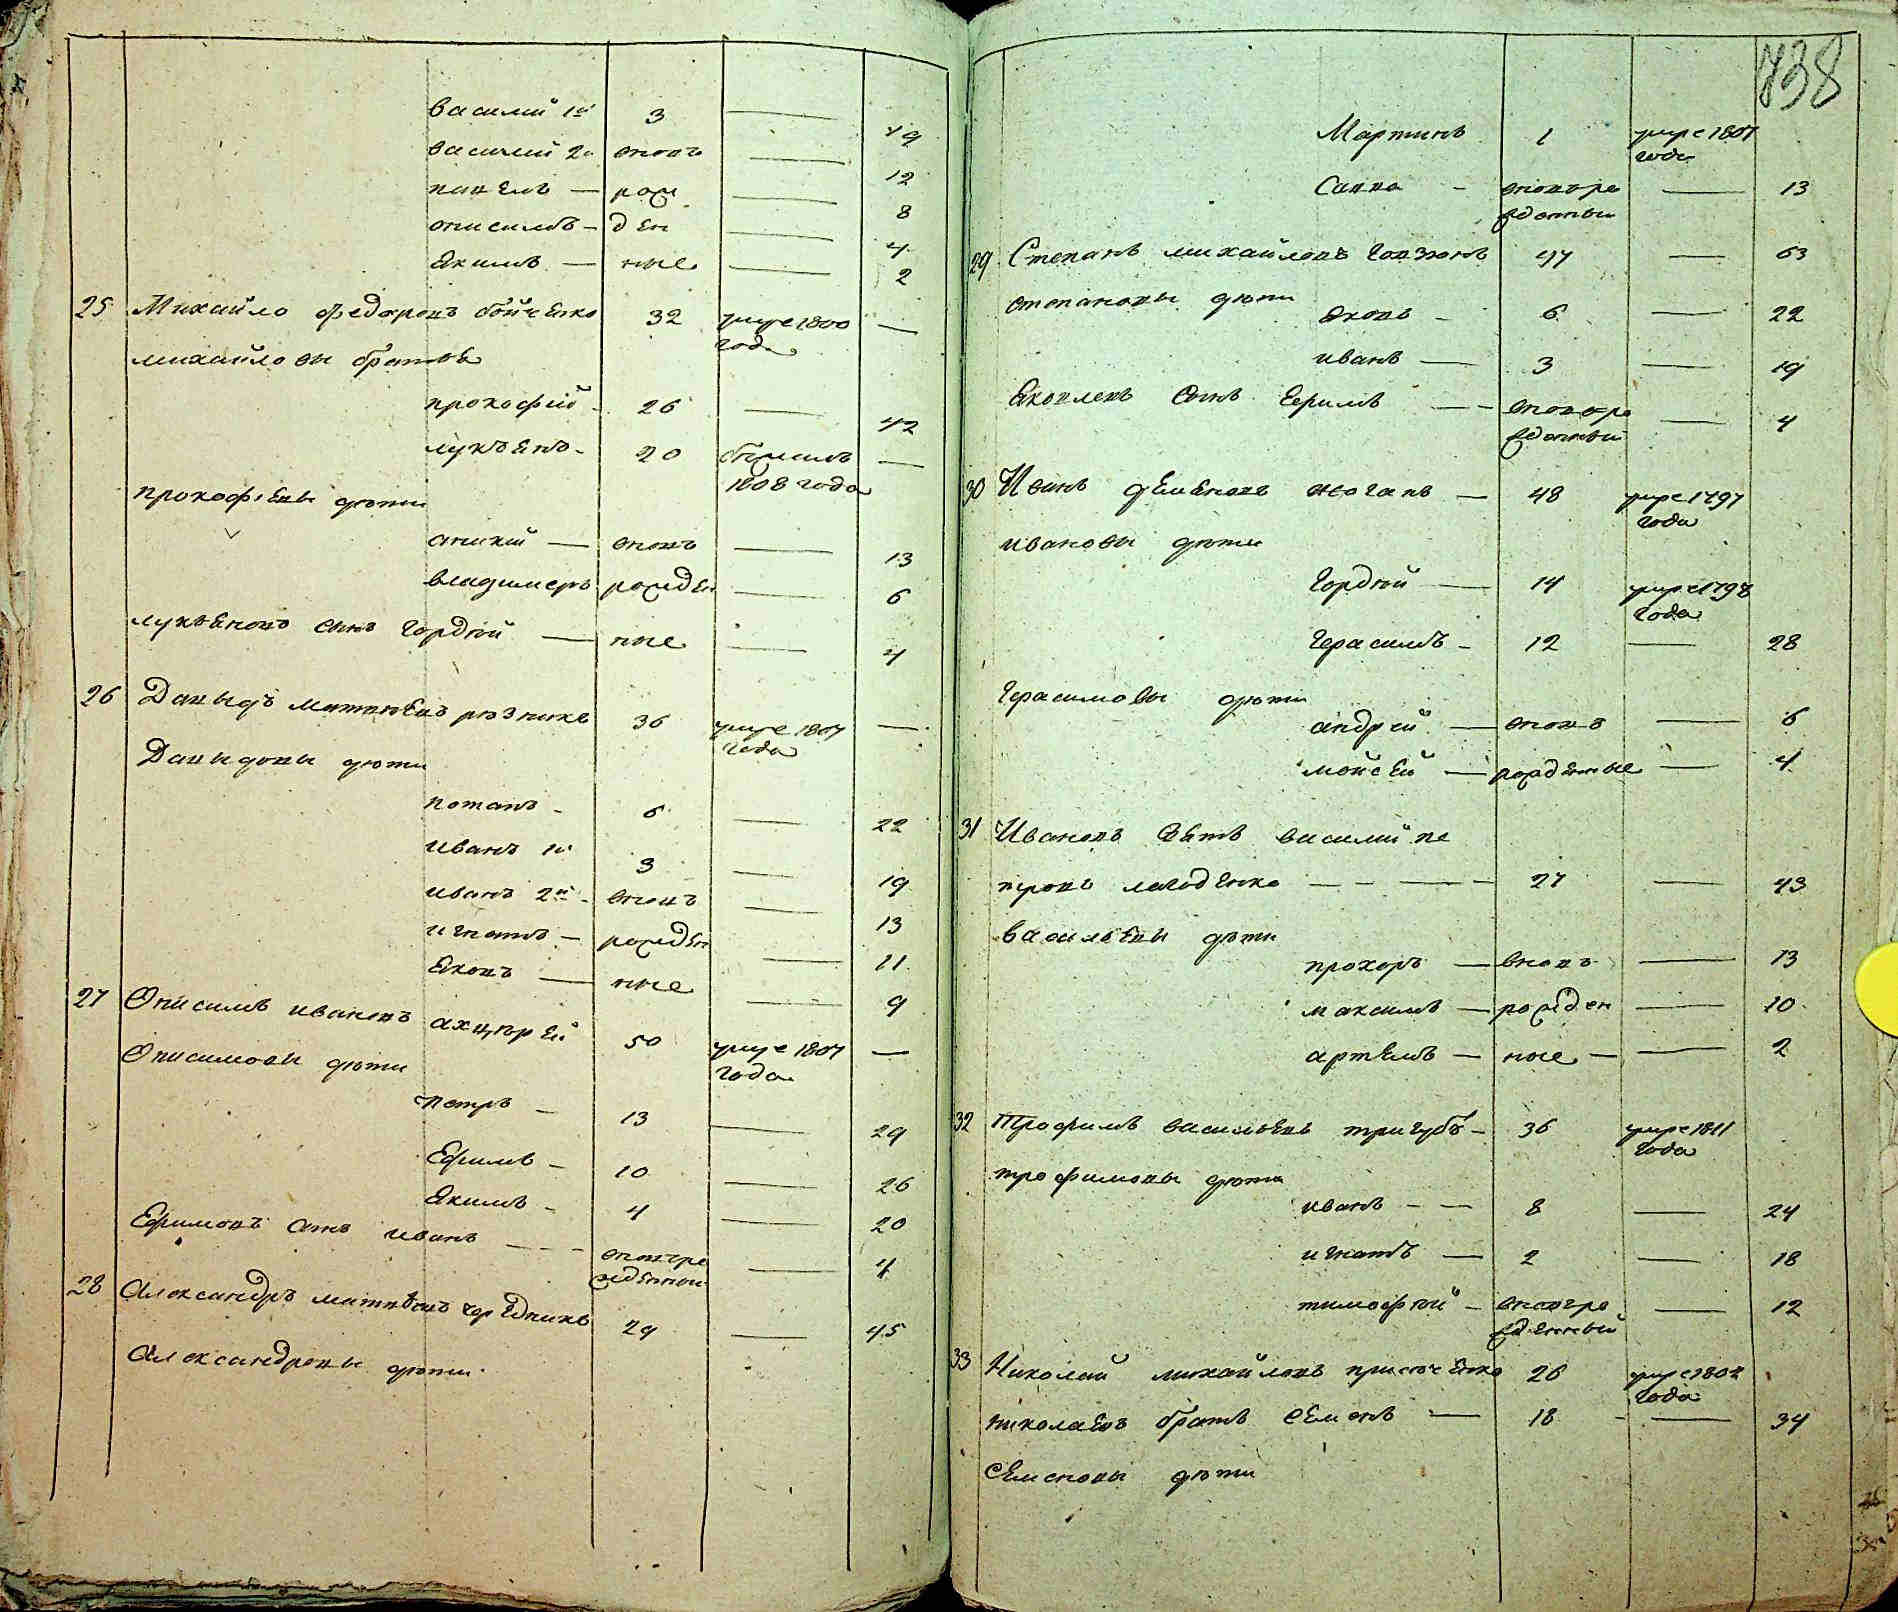 василий 1й 3 — 19
василий 2й вновь — 12
павелъ — рож — 8
онисимъ — ден — 4
Якимъ — ные — 2
25 Михайло федоровъ бойченко 32 умре 1800 —
года
михайловы братья
прокофий 26 — 42
лукьянъ 20 бежалъ —
1808 года
прокофьевы дѣти
аникий — вновь — 13
владимеръ рожден — 6
лукьяновъ сынъ Гордѣй — ные — 4
26 Давыдъ матвѣевъ рѣзникъ 36 умре 1807 —
года
Давыдовы дѣти
потапъ 6 — 22
иванъ 1й 3 — 19
иванъ 2й вновь — 13
игнатъ — рожден — 11
Яковъ — ные — 9
27 Онисимъ ивановъ ахтырей 50 умре 1807 —
года
Онисимовы дѣти
петръ — 13 — 29
Ефимъ — 10 — 26
Якимъ — 4 — 20
Ефимовъ сынъ иванъ — вновьро — 4
жденный
28 Александръ матвѣевъ чередникъ 29 — 45
Александровы дѣти
738
Мартинъ 1 умре 1807
года
Савва — вновьро — 13
жденный
29 Степанъ михайловъ Говзюнъ 47 — 63
степановы дѣти
Яковъ — 6 — 22
иванъ — 3 — 19
Яковлевъ сынъ Ефимъ — вновьро — 4
жденный
30 Иванъ демьяновъ жоганъ — 48 умре 1797
года
ивановы дѣти
Гордѣй — 14 умре 1798
года
Герасимъ — 12 — 28
Герасимовы дѣти
андрей — вновь — 6
мойсей — рожденные — 4
31 Ивановъ зять василий пе
тровъ лагоденко — 27 — 43
васильевы дѣти
прохоръ — вновь — 13
максимъ — рожден — 10
артемъ — ные — 2
32 Трофимъ васильевъ тригубъ — 36 умре 1811
года
трофимовы дѣти
иванъ — 8 — 24
игнатъ — 2 — 18
тимофѣй — вновьро — 12
жденный
33 Николай михайловъ 26 умре 1802
года
николаевъ братъ семенъ — 18 — 34
семеновы дѣти